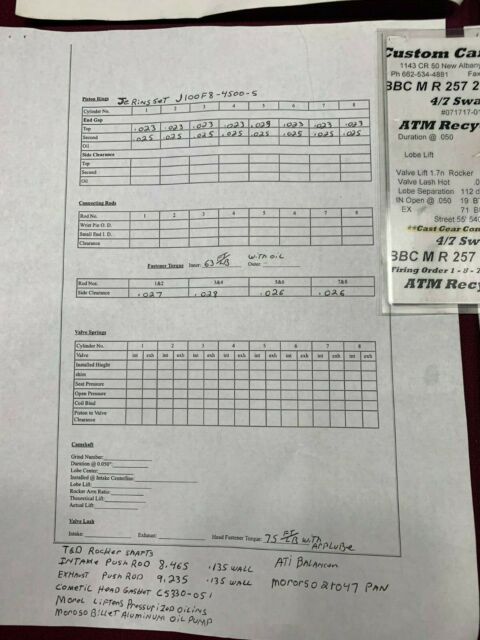 Piston Rings JE Ring Set J100F8-4500-5
Cylinder No. 1 2 3 4 5 6 7 8
End Gap
Top .023 .023 .023 .023 .023 .023 .023 .023
Second .025 .025 .025 .025 .025 .025 .025 .025
Oil
Side Clearance
Top
Second
Oil
Connecting Rods
Rod No. 1 2 3 4 5 6 7 8
Wrist Pin O. D.
Small End I. D.
Clearance
Fastener Torque Inner: 63 FT/LB Outer: with oil
Rod Nos: 1&2 3&4 5&6 7&8
Side Clearance .027 .028 .026 .026
Valve Springs
Cylinder No. 1 2 3 4 5 6 7 8
Valve int exh int exh int exh int exh int exh int exh int exh int exh
Installed Hieght
shim
Seat Pressure
Open Pressure
Coil Bind
Piston to Valve
Clearance
Camshaft
Grind Number:
Duration @ 0.050":
Lobe Center:
Installed @ Intake Centerline:
Lobe Lift:
Rocker Arm Ratio:
Theoretical Lift:
Actual Lift:
Valve Lash
Intake: Exhaust: Head Fastener Torque: 75 FT/LB with ARP Lube
T&D Rocker shafts
INTAKE Push ROD 8.465 .135 WALL ATI Balancer
EXHAUST Push ROD 9.235 .135 WALL moroso 21047 PAN
Cometic Head Gasket C5330-051
Morel Lifters Pressurized oiling
Moroso Billet Aluminum OIL Pump
Custom Ca
1143 CR 50 New Albany
Ph 662-534-4891 Fax
BBC M R 257 2
4/7 Swa
#071717-0
ATM Recy
Duration @ .050
Lobe Lift
Valve Lift 1.7n Rocker
Valve Lash Hot .0
Lobe Separation 112 d
IN Open @ .050 19 BT
EX 71 B
Street 55' 540
**Cast Gear Com
4/7 Sw
BBC M R 257
Firing Order 1 - 8 - 7
ATM Recy